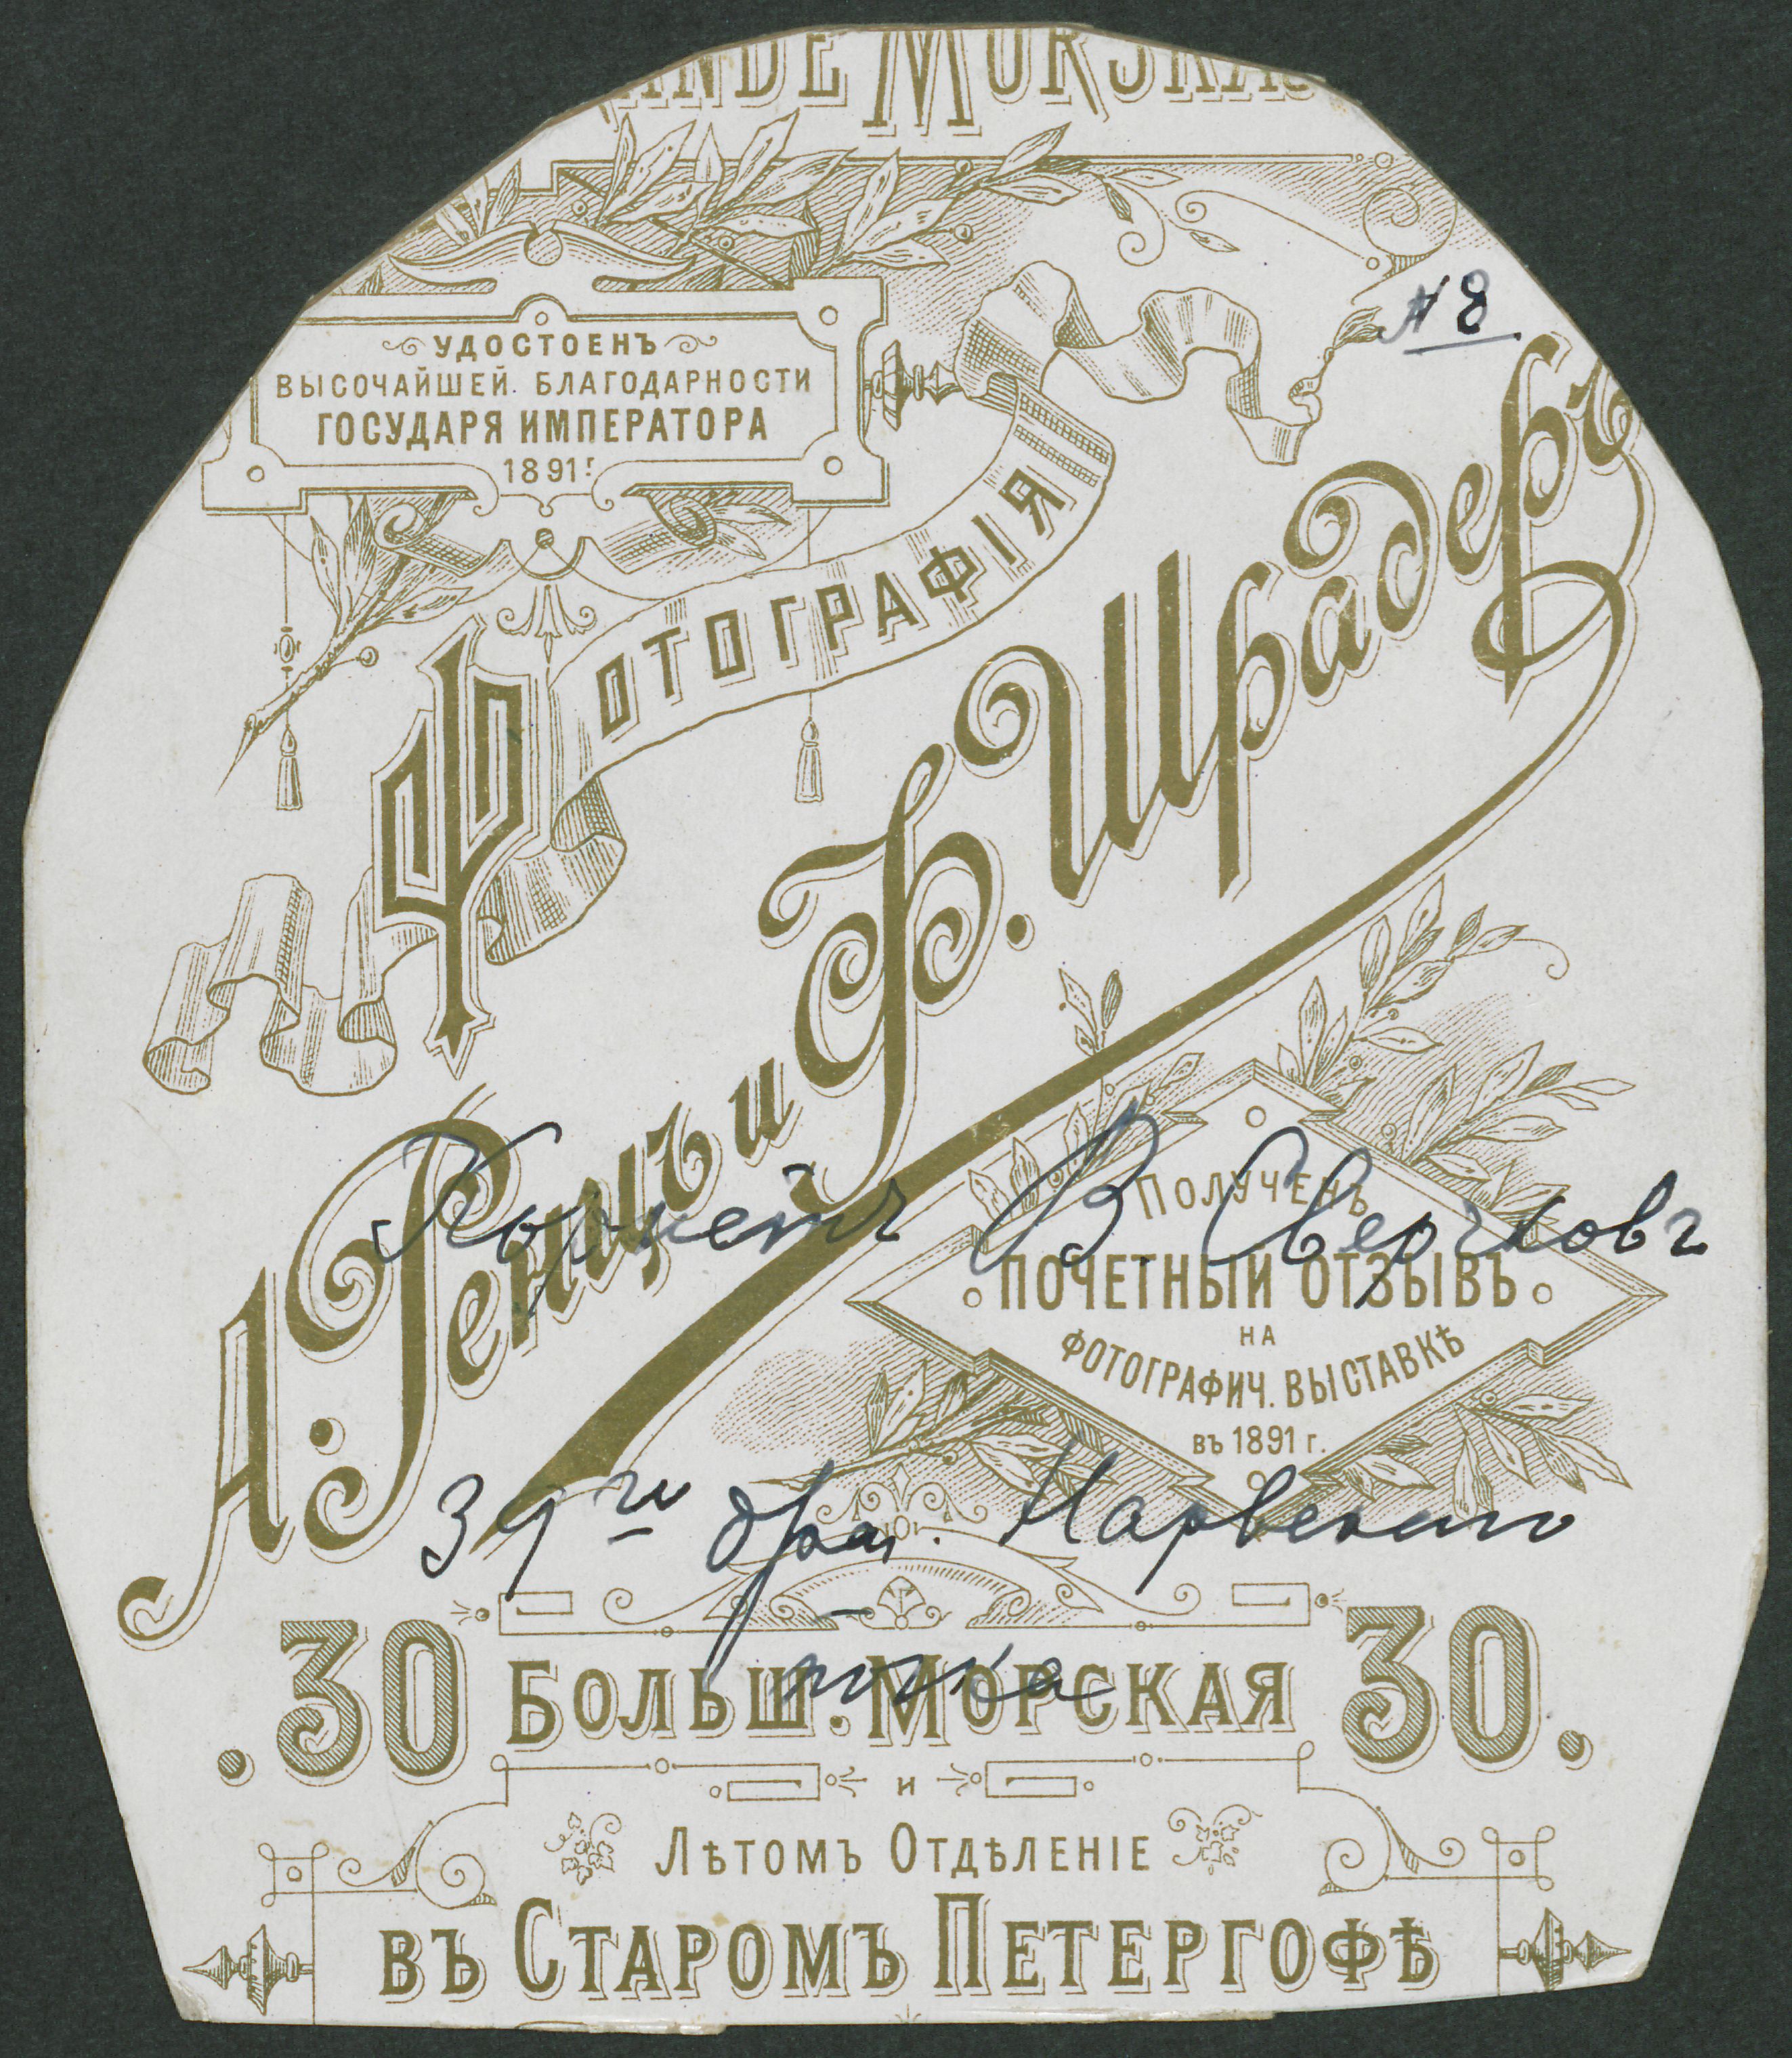 GRANDE MORSKAЯ
N 8.
УДОСТОЕНЪ
ВЫСОЧАЙШЕЙ. БЛАГОДАРНОСТИ
ГОСУДАРЯ ИМПЕРАТОРА
1891 г.
ФОТОГРАФІЯ
А. Ренцъ и Ф. Шрадеръ
Корнетъ В. Сверчковъ
ПОЛУЧЕНЪ
ПОЧЕТНЫЙ ОТЗЫВЪ
НА
ФОТОГРАФИЧ. ВЫСТАВКѢ
въ 1891 г.
39го драг. Нарвскаго
полка
.30 БОЛЬШ. МОРСКАЯ 30.
и
ЛѢТОМЪ ОТДѢЛЕНІЕ
ВЪ СТАРОМЪ ПЕТЕРГОФѢ